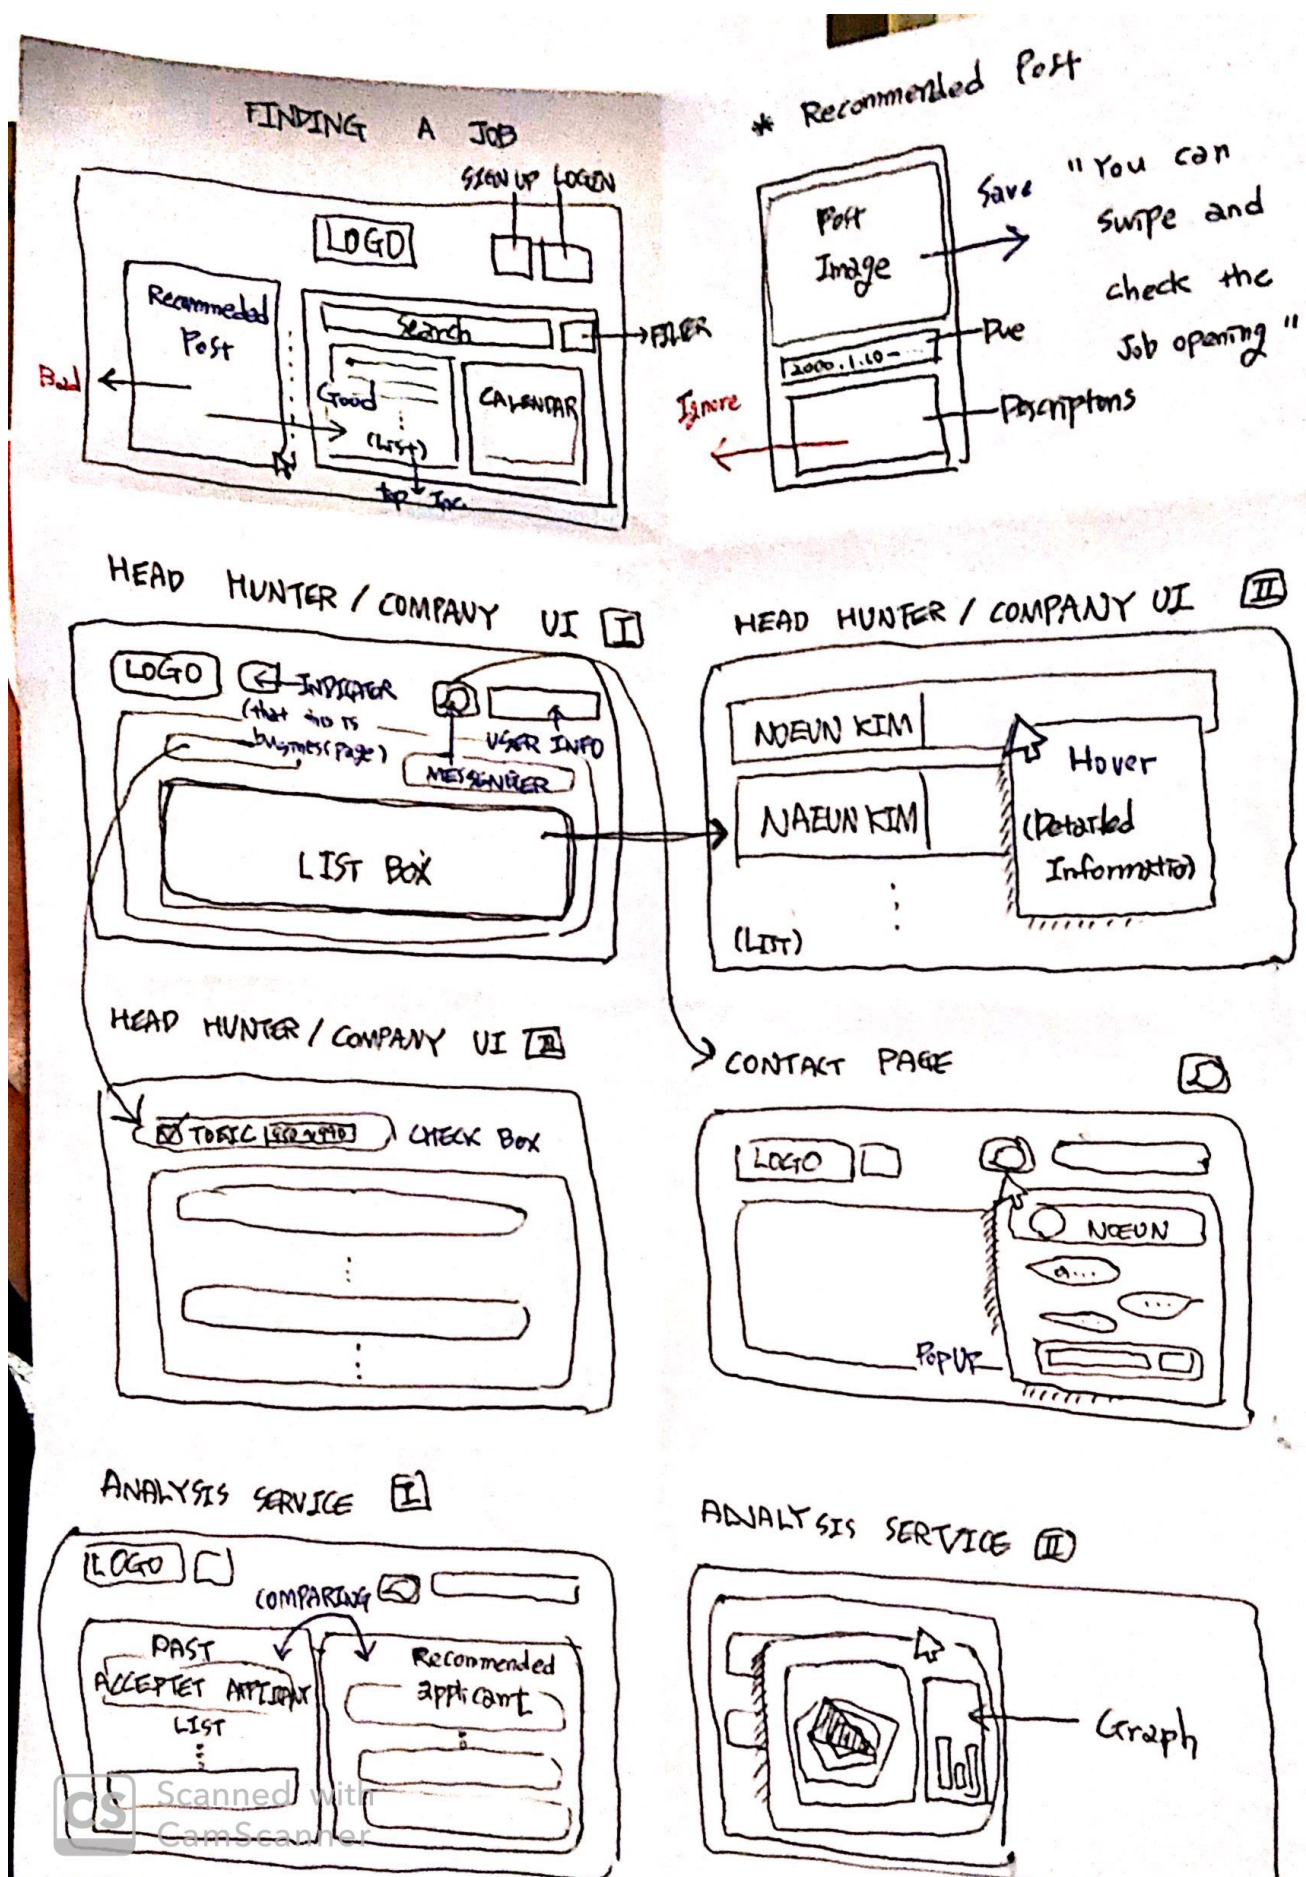 FINDING A JOB
SIGN UP LOGIN
LOGO
Recommeded
Post
Search
FILTER
Bad
Good
(List)
CALENDAR
* Recommended Post
Post
Image
Save
"You can
swipe and
check the
Job opening"
Due
2000.1.10-...
Ignore
Descriptons
HEAD HUNTER / COMPANY UI I
LOGO
INDICATOR
(that this is
business page)
USER INFO
MESSENGER
LIST BOX
HEAD HUNTER / COMPANY UI II
NOEUN KIM
NAEUN KIM
Hover
(Detailed
Information)
(LIST)
HEAD HUNTER / COMPANY UI
TOEIC
CHECK BOX
CONTACT PAGE
LOGO
NOEUN
POPUP
ANALYSIS SERVICE I
LOGO
COMPARING
PAST
ACCEPTET APPLICANT
LIST
Recommended
applicant
ANALYSIS SERVICE II
Graph
CS Scanned with
CamScanner